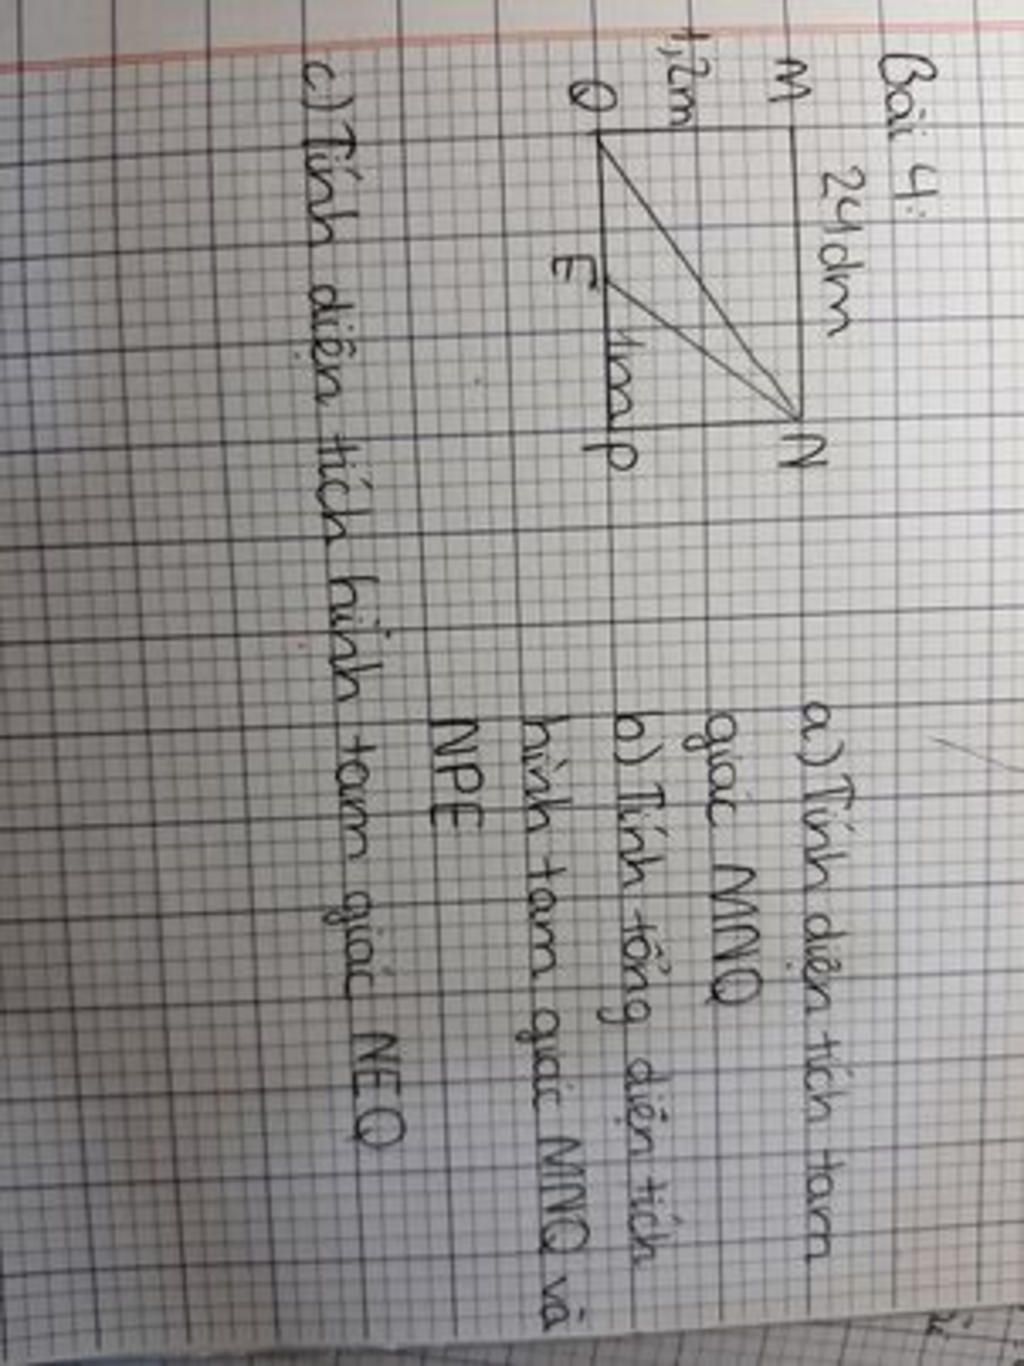 Bài 4:
24dm
M
N
1,2m
Q
E
1m
P
a) Tính diện tích tam
giác MNQ
b) Tính tổng diện tích
hình tam giác MNQ và
NPE
c) Tính diện tích hình tam giác NEQ